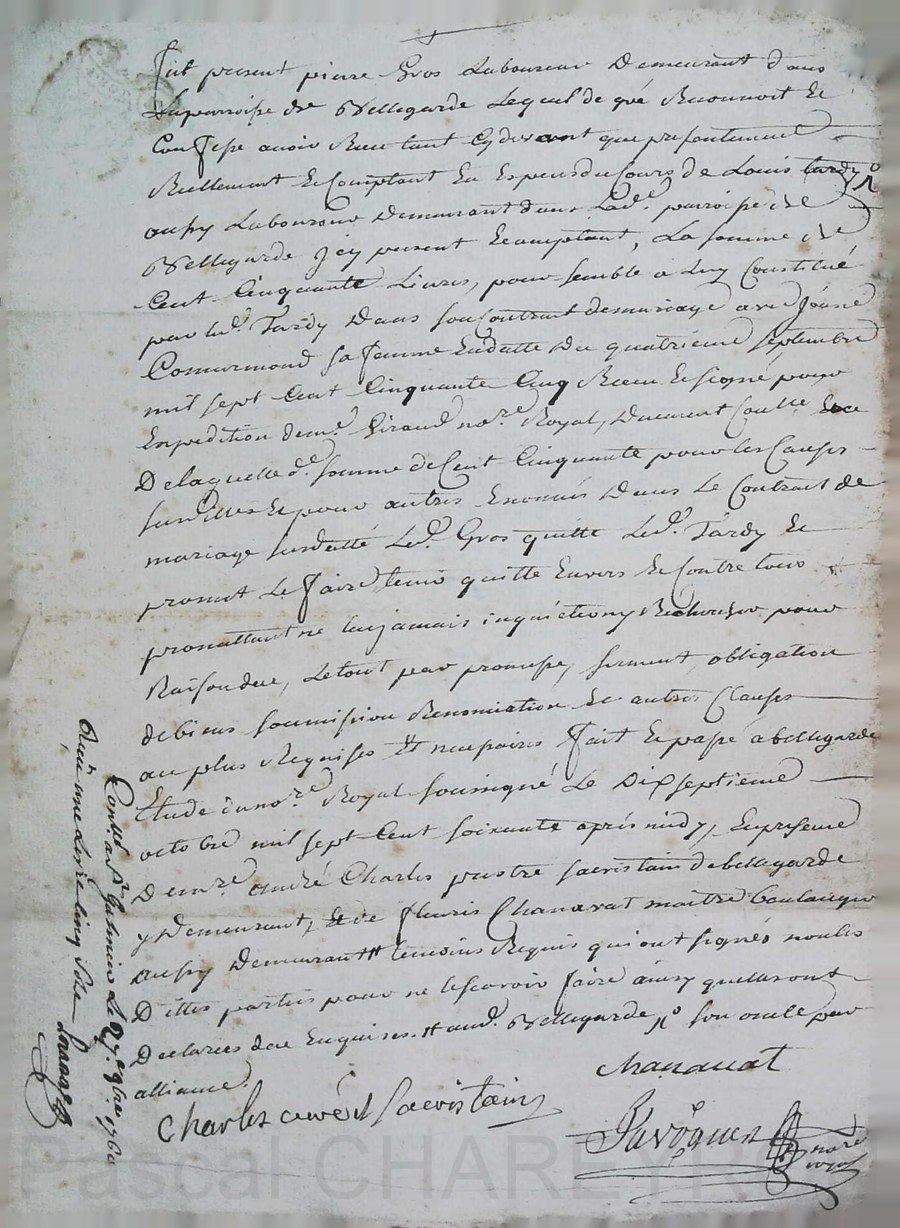 fut present pierre Gros Laboureur Demeurant dans
La parroisse de Bellegarde Lequel de gré Reconnoit Et
Confesse avoir Reçu tant Cydevant que presentement
Reellement Et Comptant En Especes du Cours de Louis tardy
aussy Laboureur Demeurant dans Lad.e parroisse de
Bellegarde Jcy present Acceptant, La somme de
Cent Cinquante Livres, pour semble a Luy Constitué
par led. Tardy Dans son Contrat de mariage avec Jeane
Commarmond sa femme En datte Du quatrieme septembre
mil sept Cent Cinquante Cinq Recu Et signé pour
Expedition de m.e Giraud no.re Royal, Duement Controllé
De laquelle d.e somme de Cent Cinquante pour les Causes
susdittes Et pour autres Enoncés Dans Le Contract de
mariage susdatté Led. Gros quitte Led. Tardy Et
promet Le faire tenir quitte Envers Et Contre tous
promettant ne luy jamais inquiéter ny Rechercher pour
Raison de ce, Le tout par promesse, serment, obligation
de biens soumission Renonciation Et autres Clauses
au plus Requises Et necessaires fait Et passé a bellegarde
Etude du no.re Royal soussigné Le Dix septieme
octobre mil sept Cent soixante après midy, En presence
De m.re andré Charles prestre sacristain de bellegarde
y Demeurant, Et de fleuris Chanavat maitre boulanger
aussy Demeurant temoins Requis qui ont signés non les
Dittes parties pour ne le scavoir faire ainsy quelles ont
Declarées de ce Enquises aud. Bellegarde son oncle par
alliance.
Chanavat
Charles curé et Sacristain
Javogues
no.re royal
Con.llé a S.t Galmier Le 27.e 8bre 1760
Reçu une Livre cinq sols